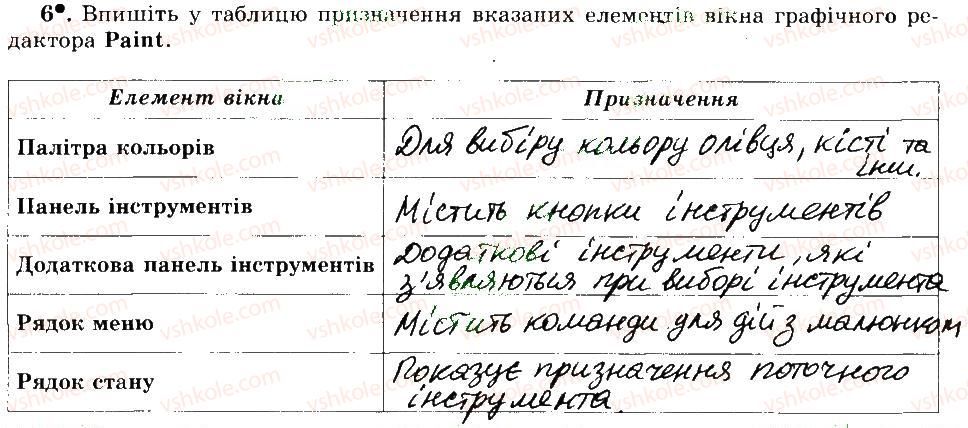 6•. Впишіть у таблицю призначення вказаних елементів вікна графічного ре-
дактора Paint.
Елемент вікна Призначення
Палітра кольорів Для вибіру кольору олівця, кісті та
інш.
Панель інструментів Містить кнопки інструментів
Додаткова панель інструментів Додаткові інструменти, які
з'являються при виборі інструмента
Рядок меню Містить команди для дій з малюнком
Рядок стану Показує призначення поточного
інструмента.
vshkole.com